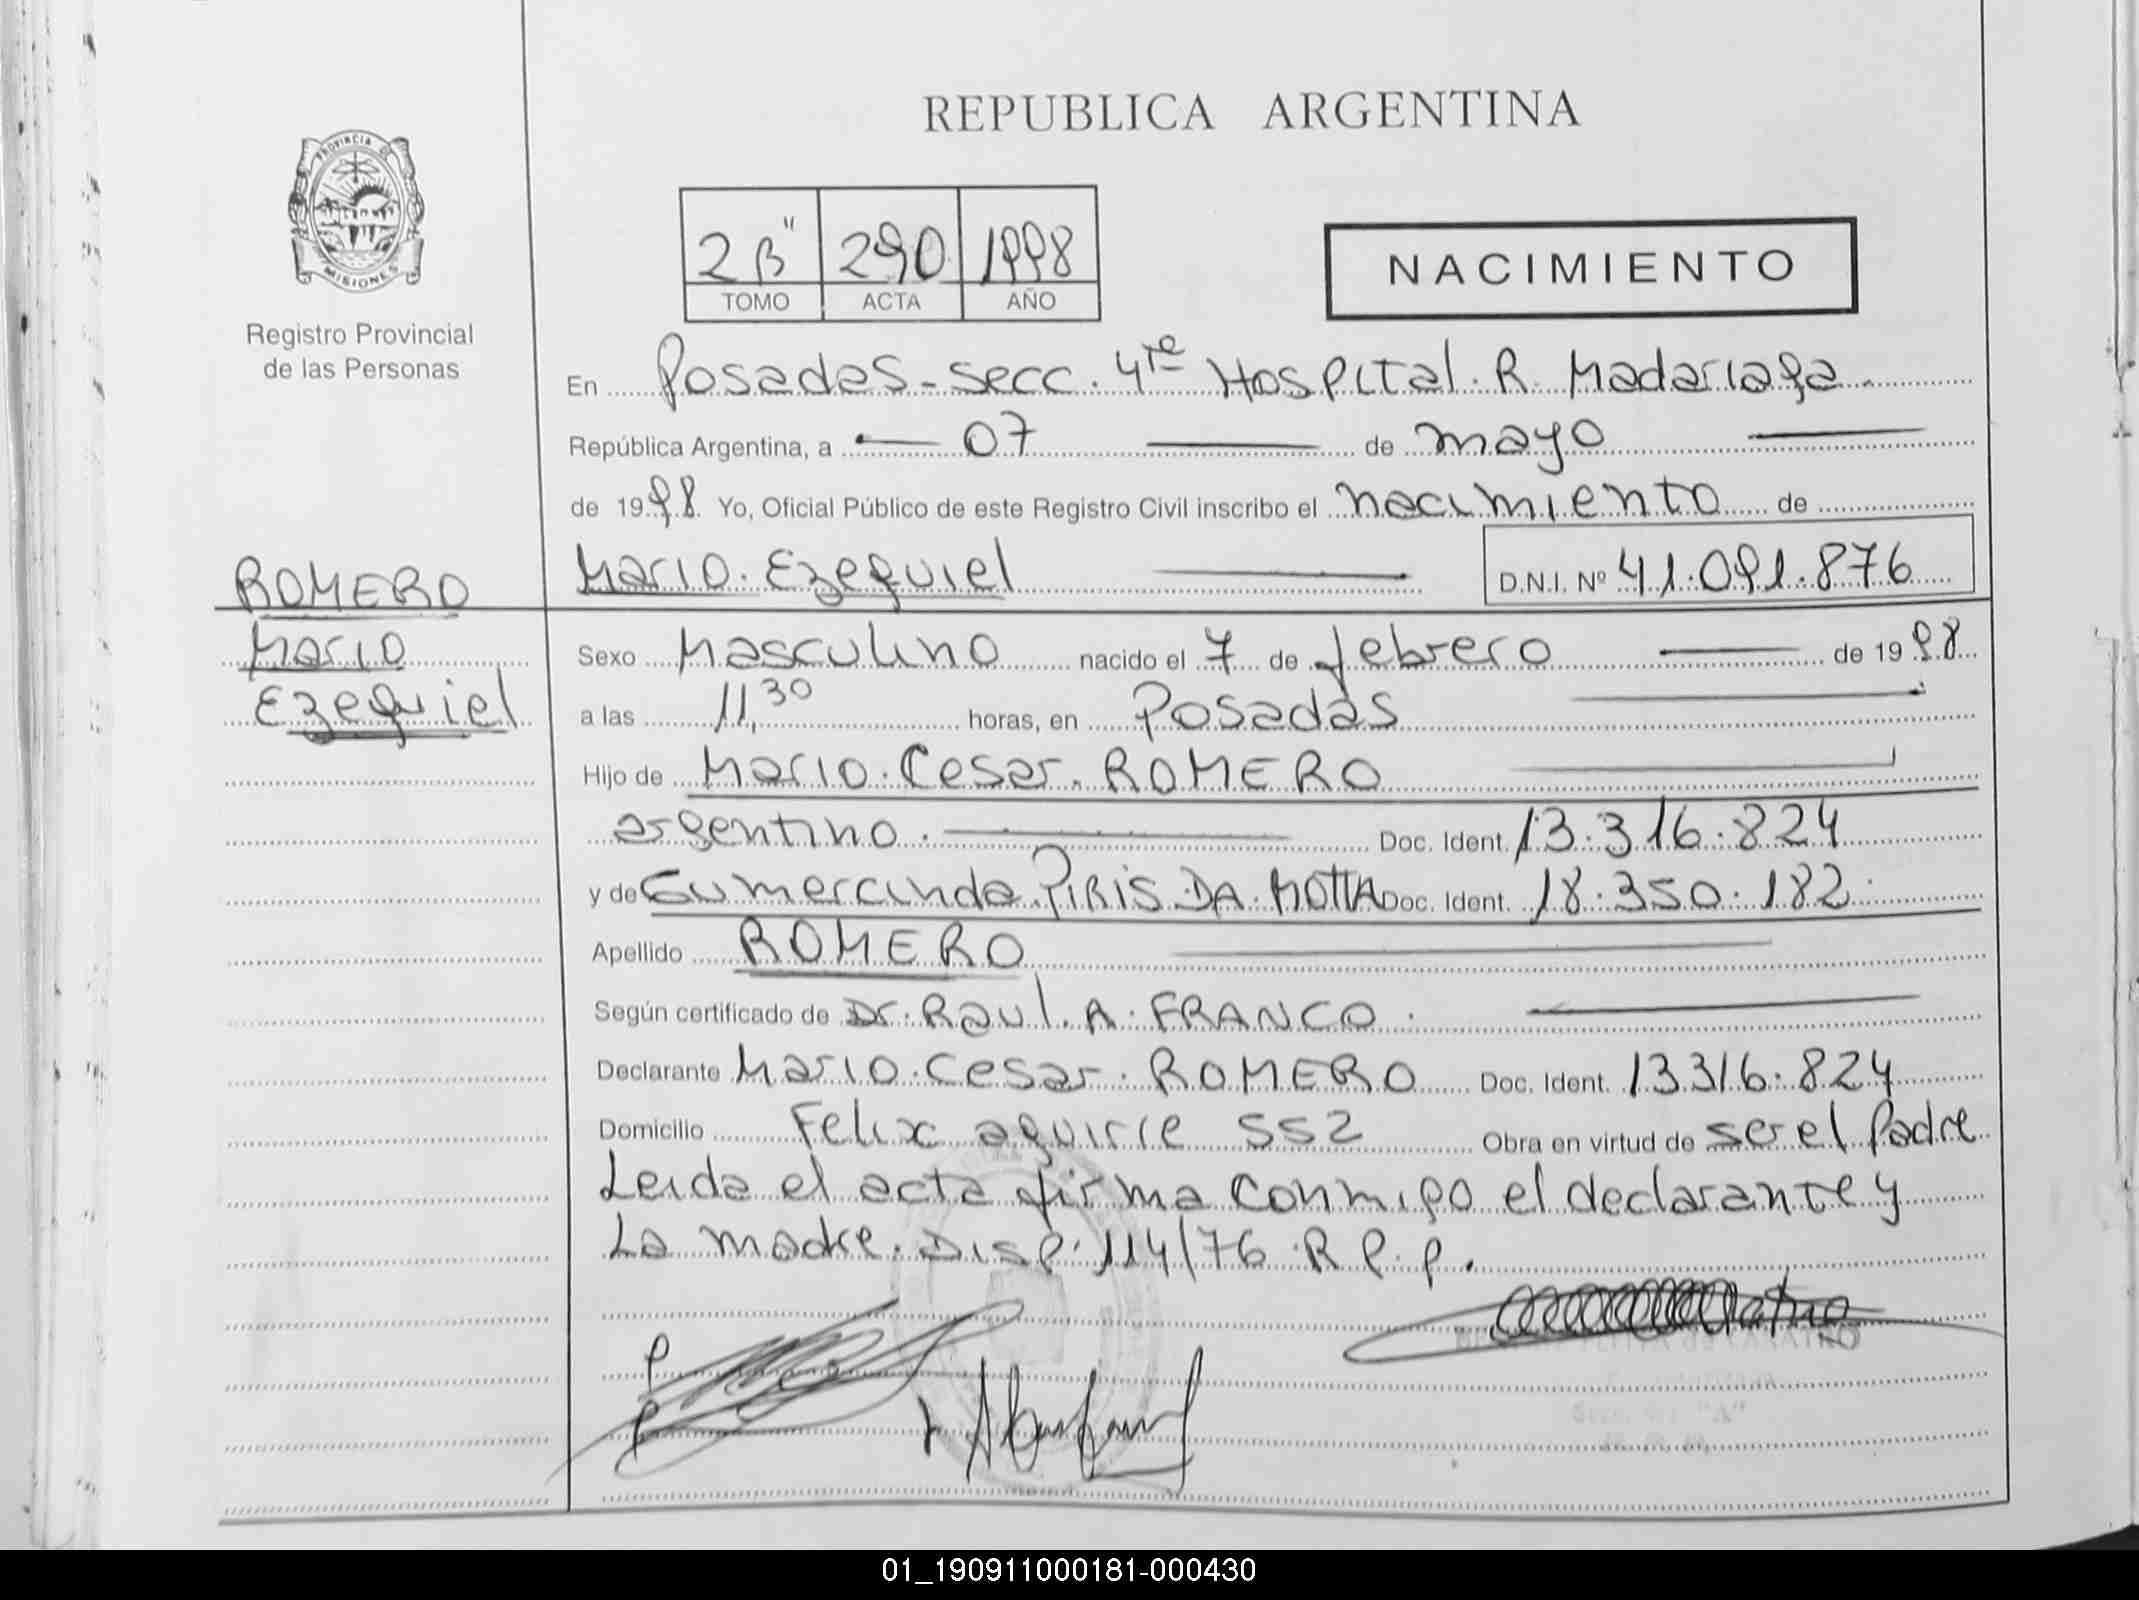 REPUBLICA ARGENTINA
PROVINCIA DE
MISIONES
Registro Provincial
de las Personas
2 B" 290 1998
TOMO ACTA AÑO
NACIMIENTO
En Posadas - secc. 4ta Hospital. R. Madariaga.
República Argentina, a 07 de mayo
de 1998 Yo, Oficial Público de este Registro Civil inscribo el nacimiento de
Mario. Ezequiel D.N.I. Nº 41.091.876
ROMERO
Mario
Ezequiel
Sexo Masculino nacido el 7 de febrero de 1998
a las 11,30 horas, en Posadas
Hijo de Mario. Cesar. ROMERO
argentino. Doc. Ident. 13.316.824
y de Gumercinda. PIRIS. DA. MOTTA Doc. Ident. 18.350.182.
Apellido ROMERO
Según certificado de Dr. Raul. A. FRANCO.
Declarante Mario. Cesar. ROMERO Doc. Ident. 13316.824
Domicilio Felix aguirre 552 Obra en virtud de ser el Padre
Leida el acta firma conmigo el declarante y
La madre. Disp. 114/76. R. P. p.
01_190911000181-000430